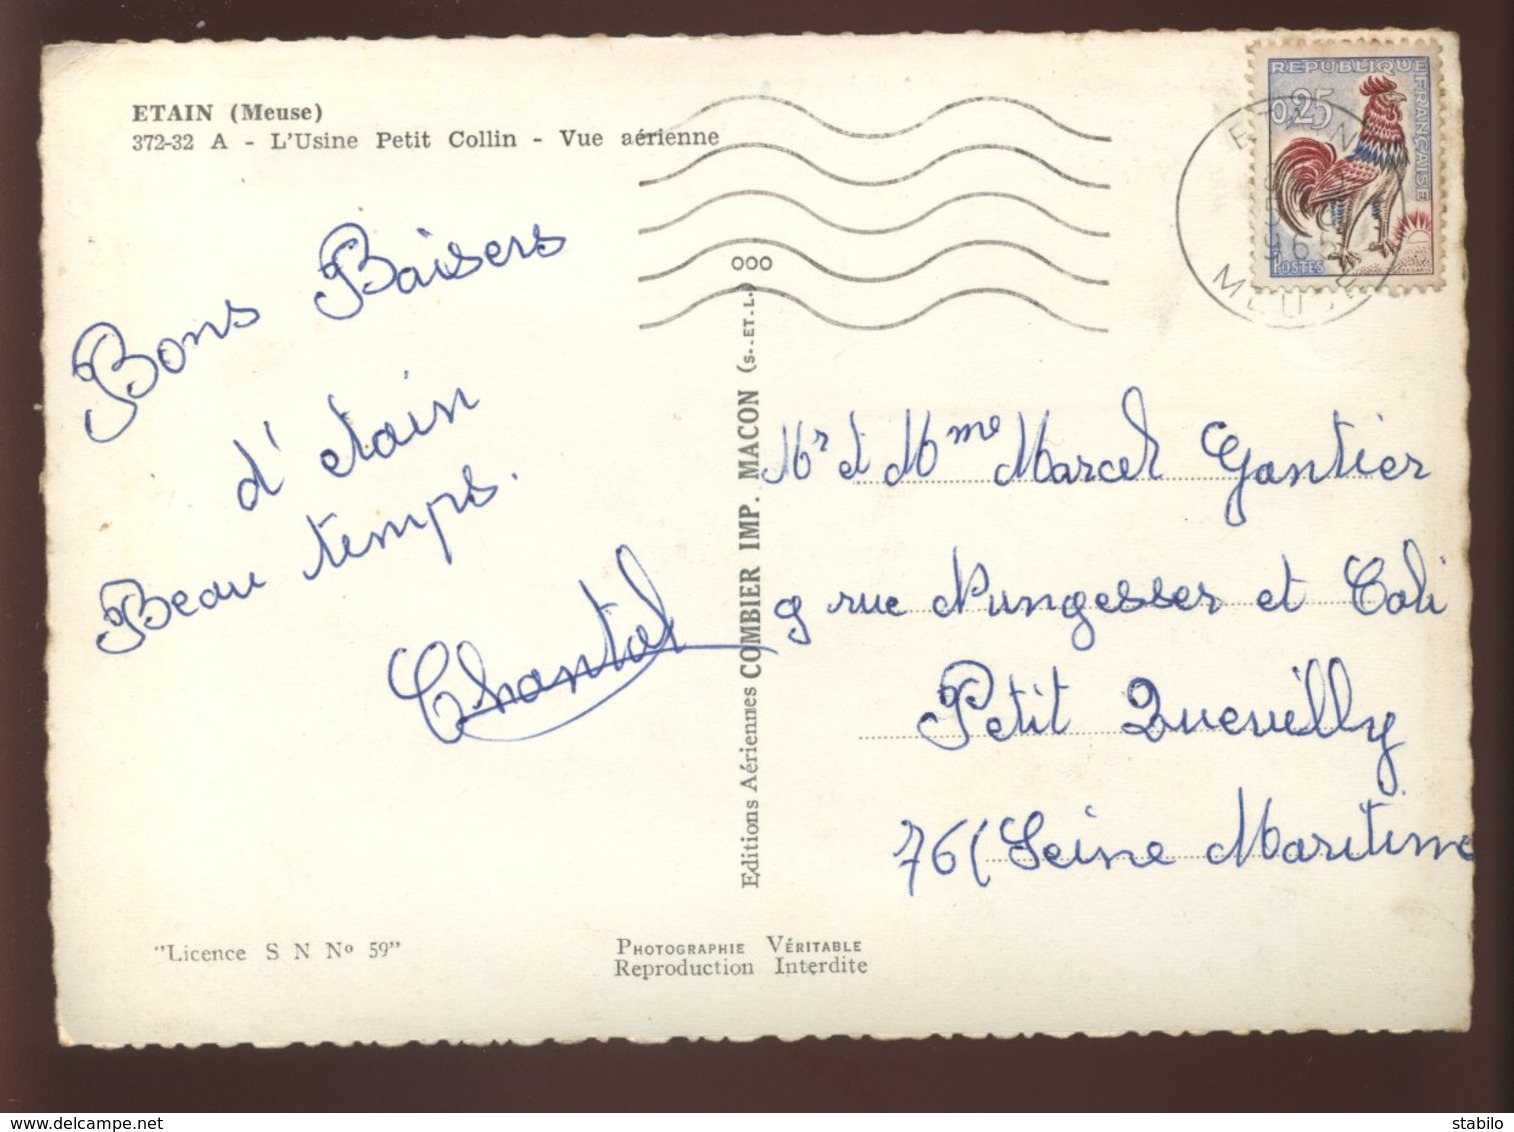 ETAIN (Meuse)
372-32 A - L'Usine Petit Collin - Vue aérienne
Bons Baisers
d'étain
Beau temps.
Chantal
Editions Aériennes COMBIER IMP. MACON (S.-ET-L.)
000
REPUBLIQUE FRANÇAISE
0,25
POSTES
ETAIN
1965
MEUSE
Mr et Mme Marcel Gantier
9 rue Nungesser et Coli
Petit Quevilly
76 (Seine Maritime
"Licence S N No 59"
PHOTOGRAPHIE VÉRITABLE
Reproduction Interdite
delcampe.net
stabilo